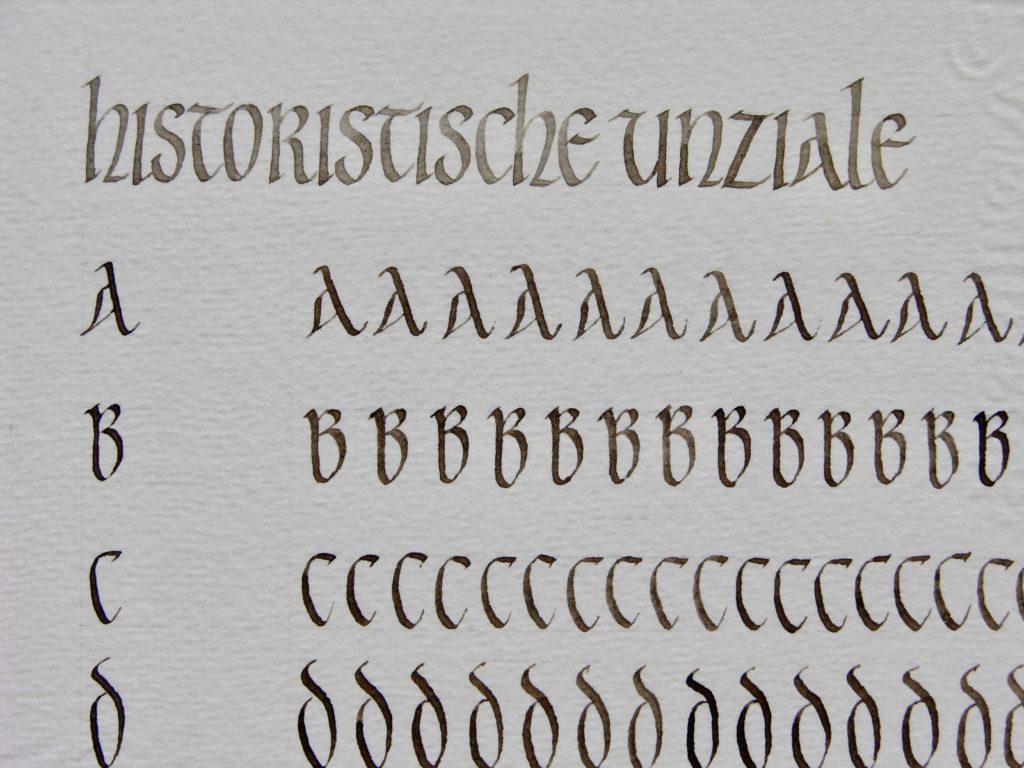 historistische unziale
A A A A A A A A A A A A
B B B B B B B B B B B B B B
C C C C C C C C C C C C C C C C C C C
d d d d d d d d d d d d d d d